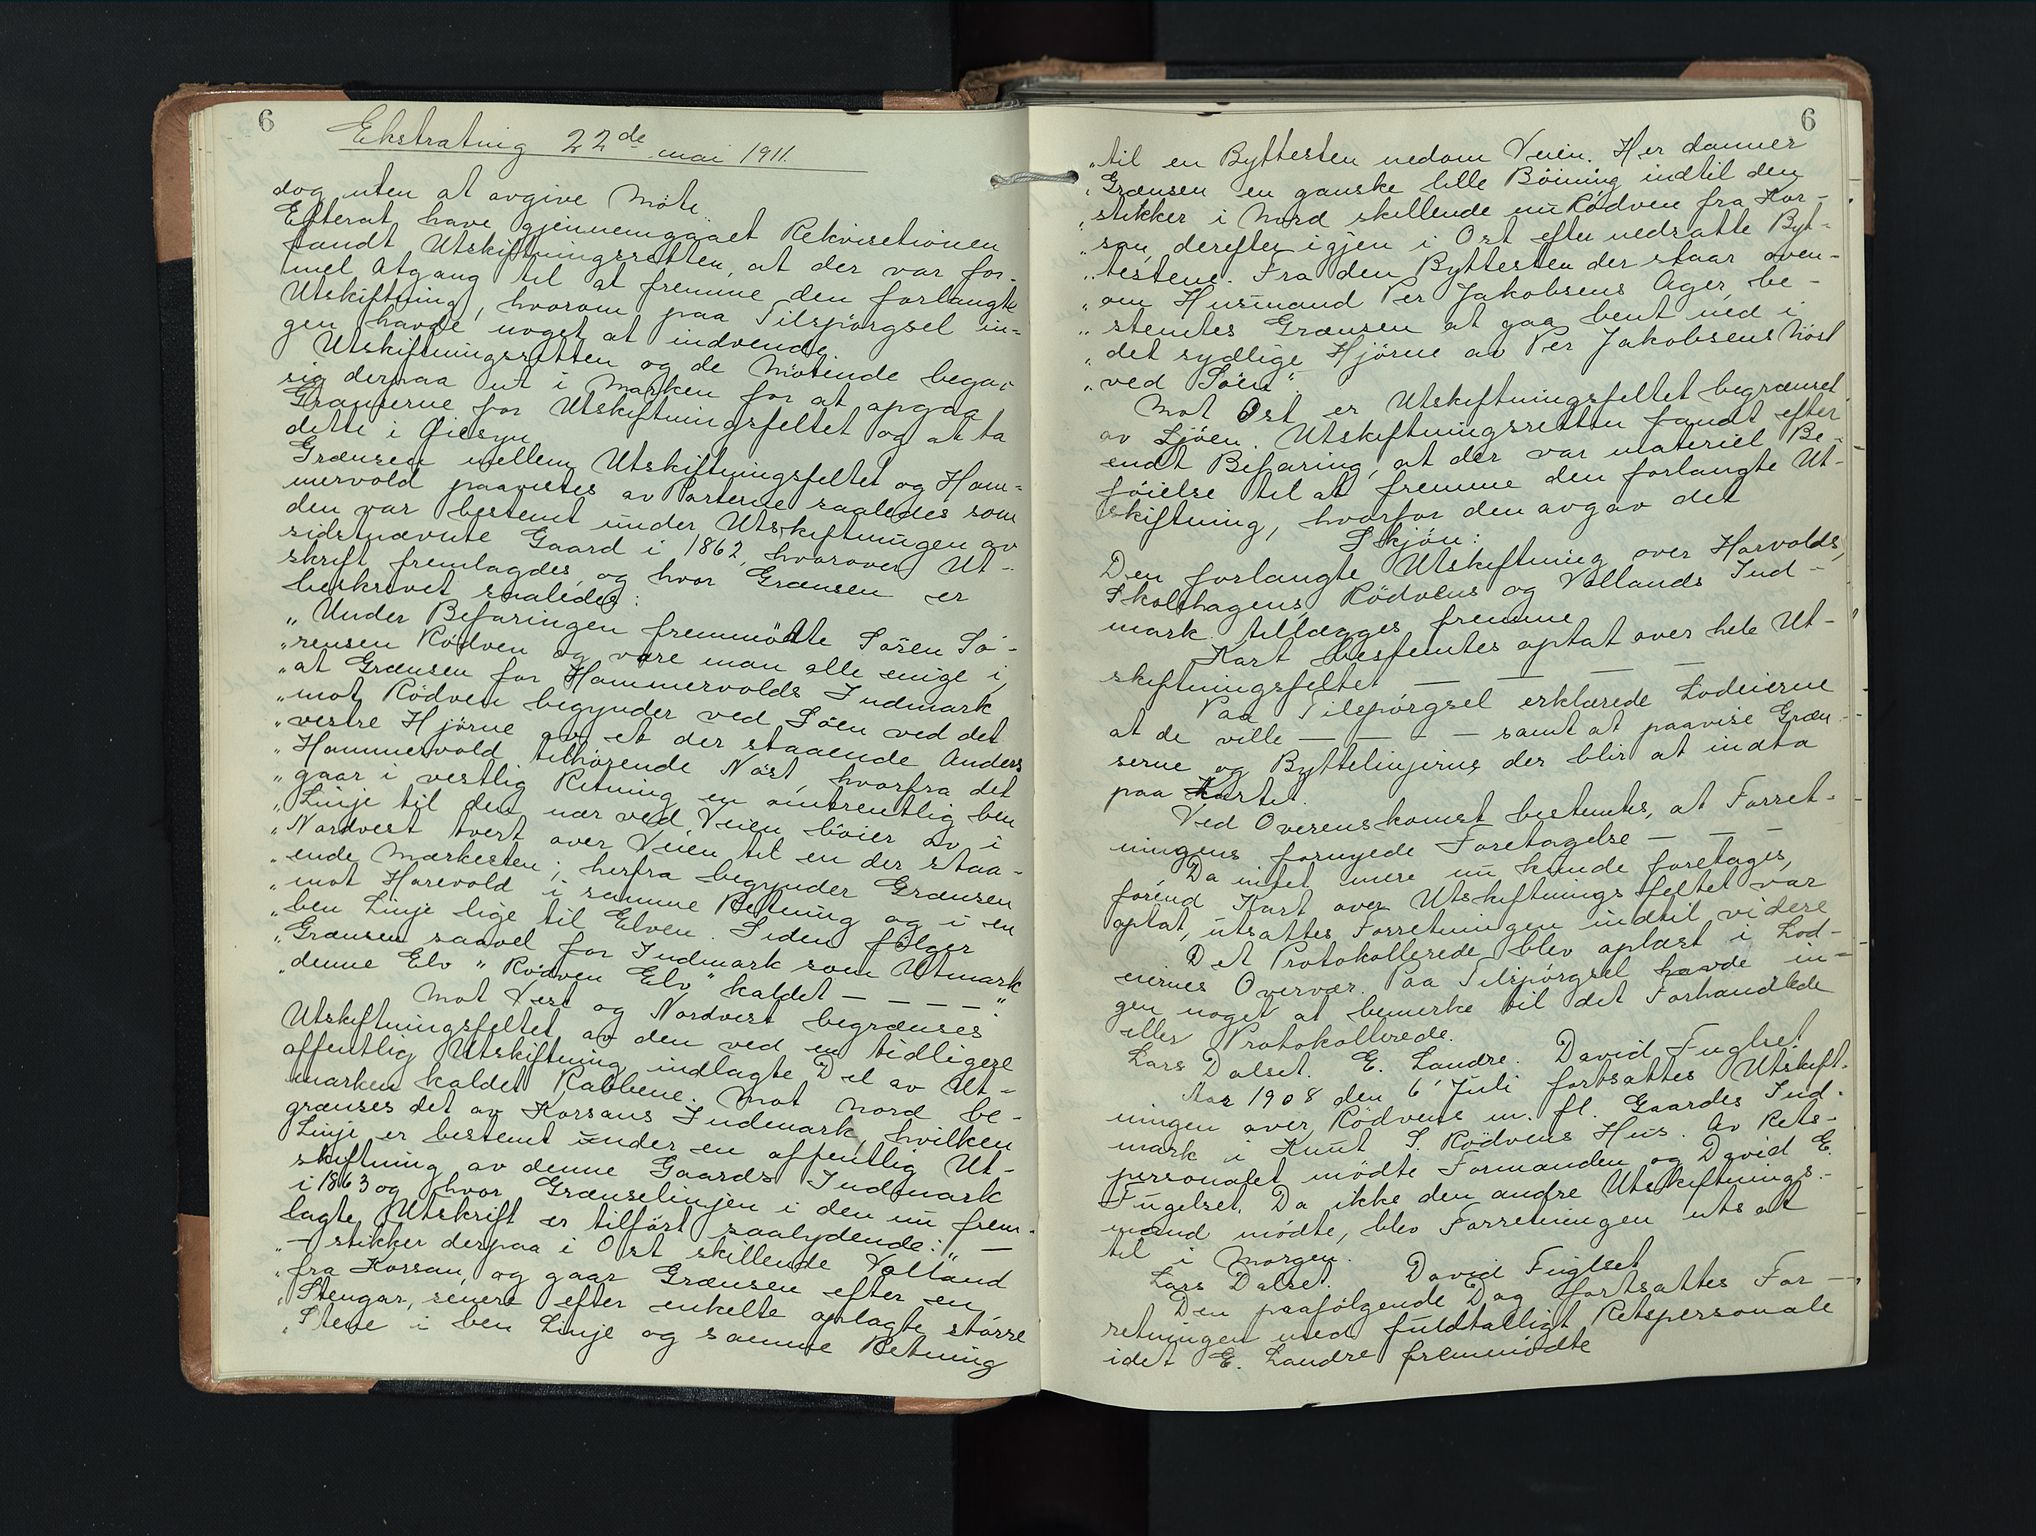 6
Ekstrating 22de mai 1911.
dog uten at avgive Møte.
Efterat have gjennemgaaet Rekvisitionen
fandt Utskiftningsretten, at der var for-
mel Atgang til at fremme den forlangte
Utskiftning, hvorom paa Tilspørgsel in-
gen havde noget at indvende.
Utskiftningsretten og de Møtende begav
sig derpaa ut i Marken for at opgaa
Grænserne for Utskiftningsfeltet og at ta
dette i Øiesyn.
Grænsen mellem Utskiftningsfeltet og Ham-
mervold paavistes av Parterne saaledes som
den var bestemt under Utskiftningen av
sidstnævnte Gaard i 1862, hvorover Ut-
skrift fremlagdes, og hvor Grænsen er
beskrevet saaledes:
„Under Befaringen fremmødte Søren Sø-
„rensen Rødven og vare man alle enige i,
„at Grænsen for Hammervolds Indmark
„mot Rødven begynder ved Søen ved det
„vestre Hjørne av et der staaende Anders
„Hammervold tilhørende Nøst, hvorfra det
„gaar i vestlig Retning en omtrentlig ben
„Linje til den nær ved Veien bøier av i
„Nordvest tvert over Veien til en der staa-
„ende Merkesten; herfra begynder Grænsen
„mot Harevold i samme Retning og i en
„ben Linje lige til Elven. Siden følger
„Grænsen saavel for Indmark som Utmark
„denne Elv „Rødven Elv“ kaldet — — — — “
Mot Vest og Nordvest begrænses
Utskiftningsfeltet av den ved en tidligere
offentlig Utskiftning indlagte Del av Ut-
marken kaldet Rabbene. Mot Nord be-
grænses det av Korsans Indmark, hvilken
Linje er bestemt under en offentlig Ut-
skiftning av denne Gaards Indmark
i 1863 og hvor Grænselinjen i den nu frem-
lagte Utskrift er tilført saalydende: „ —
„— stikker derpaa i Ost skillende Volland
„fra Korsan, og gaar Grænsen efter en
„Stengar, senere efter enkelte oplagte større
„Stene i ben Linje og samme Retning
6
„til en Byttesten nedom Veien. Her danner
„Grænsen en ganske lille Bøining indtil den
„stikker i Nord skillende nu Rødven fra Kor-
„san, derefter igjen i Ost efter nedsatte Byt-
„testene. Fra den Byttesten der staar oven-
„om Husmand Per Jakobsens Ager, be-
„stemtes Grænsen at gaa bent ned i
„det sydlige Hjørne av Per Jakobsens Nøst
„ved Søen“.
Mot Øst er Utskiftningsfeltet begrænset
av Sjøen. Utskiftningsretten fandt efter
endt Befaring, at der var materiel Be-
føielse til at fremme den forlangte Ut-
skiftning, hvorfor den avgav det
Skjøn:
Den forlangte Utskiftning over Harvolds,
Skolthagens, Rødvens og Vollands Ind-
mark tillægges fremme.
Kart bestemtes optat over hele Ut-
skiftningsfeltet — — — —
Paa Tilspørgsel erklærede Lodeierne
at de ville — — — — samt at paavise Græn-
serne og Byttelinjerne der blir at indta
paa Kartet.
Ved Overenskomst bestemtes, at Forret-
ningens fornyede Foretagelse — — —
Da intet mere nu kunde foretages,
førend Kart over Utskiftningsfeltet var
optat, utsattes Forretningen indtil videre
Det Protokollerede blev oplæst i Lod-
eiernes Overvær. Paa Tilspørgsel havde in-
gen noget at bemerke til det Forhandlede
eller Protokollerede.
Lars Dalset. E. Landre. David Fuglset
Aar 1908 den 6' Juli fortsattes Utskift-
ningen over Rødvene m. fl. Gaardes Ind-
mark i Knut S. Rødvens Hus. Av Rets-
personalet mødte Formanden og David E.
Fugelset. Da ikke den andre Utskiftnings-
mand mødte, blev Forretningen utsat
til i Morgen.
Lars Dalset. David Fuglset
Den paafølgende Dag fortsattes For-
retningen med fuldtalligt Retspersonale
idet E. Landre fremmødte